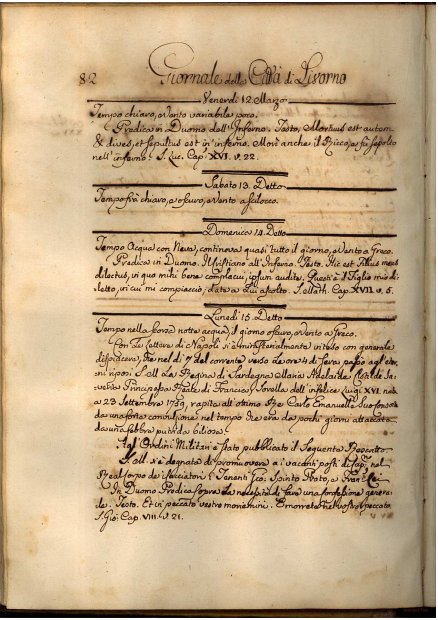 82 Giornale della Città di Livorno
Venerdi 12. Marzo
Tempo chiaro, e Vento variabile poco.
Predica in Duomo dell'Inferno. Testo, Mortuus est autem
& dives, et sepultus est in inferno. Morì anche il Ricco, e fù sepolto
nell'inferno. S. Luc. Cap. XVI. v. 22.
Sabato 13. Detto
Tempo frà chiaro, e oscuro, e Vento a Scilocco.
Domenica 14. Detto
Tempo Acqua con Neve, continova quasi tutto il giorno, e Vento a Greco.
Predica in Duomo. Il Cristiano all'Inferno. Testo. Hic est Filius meus
dilectus, in quo mihi bene complacui, ipsum audite. Questi è il Figlio mio di-
letto, in cui mi compiacci; date a Lui ascolto. S. Matth. Cap. XVII. v. 5.
Lunedi 15. Detto
Tempo nella scorsa notte acqua, il giorno oscuro, e Vento a Greco.
Con le Lettere di Napoli si è ministerialmente inteso con generale
dispiacere, che nel dì 7 del corrente verso le ore 4 di sera passò agl'eter-
ni riposi S. M. la Regina di Sardegna Maria Adelaide Clotilde Sa-
veria Principessa Reale di Francia, Sorella dell'infelice Luigi XVI. nata
a 23 Settembre 1759, rapita all'ottimo Re Carlo Emanuelle Suo Consorte
da una forte convulsione nel tempo che era da pochi giorni attaccata
da una febbre putrida biliosa.
Agl'Ordini Militari è stato pubblicato il Seguente
S. M. si è degnata di promuovere a i vacanti posti di Capi nel
Real Corpo de i Cacciatori i Tenenti Spirito
In Duomo Predica sopra la necessità di fare una confessione genera-
le. Testo. Et in peccato vestro moriemini. E morrete nel vostro peccato.
S. Gio: Cap. VIII. v. 21.